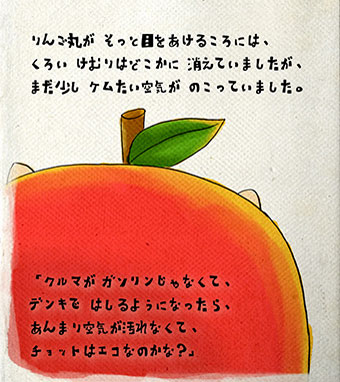 りんご丸が そっと目をあけるころには、
くろい けむりはどこかに 消えていましたが、
まだ少し ケムたい空気が のこっていました。
「クルマが ガソリンじゃなくて、
デンキで はしるようになったら、
あんまり空気が汚れなくて、
チョットはエコなのかな？」